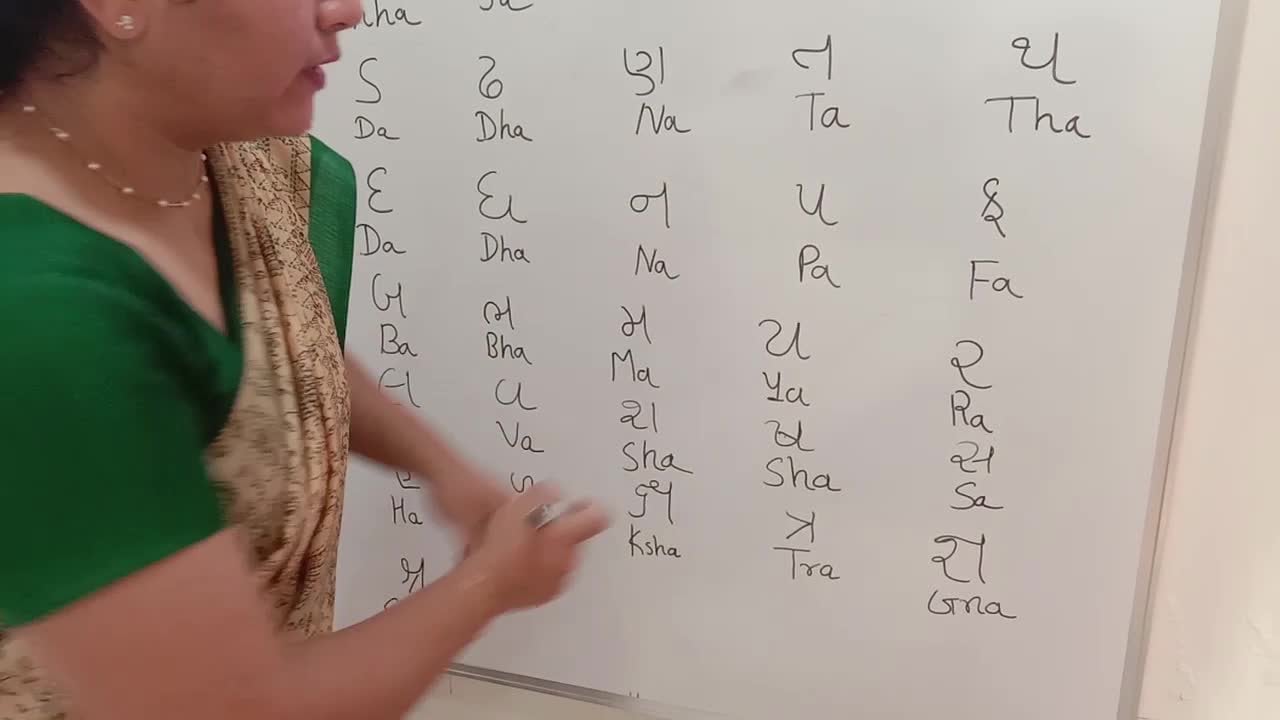 Ja
ડ ઢ ણ ત થ
Da Dha Na Ta Tha
દ ધ ન પ ફ
Da Dha Na Pa Fa
બ ભ મ ય ર
Ba Bha Ma Ya Ra
લ વ શ ષ સ
Va Sha Sha Sa
હ ળ ક્ષ ત્ર જ્ઞ
Ha Ksha Tra Gna
શ્ર